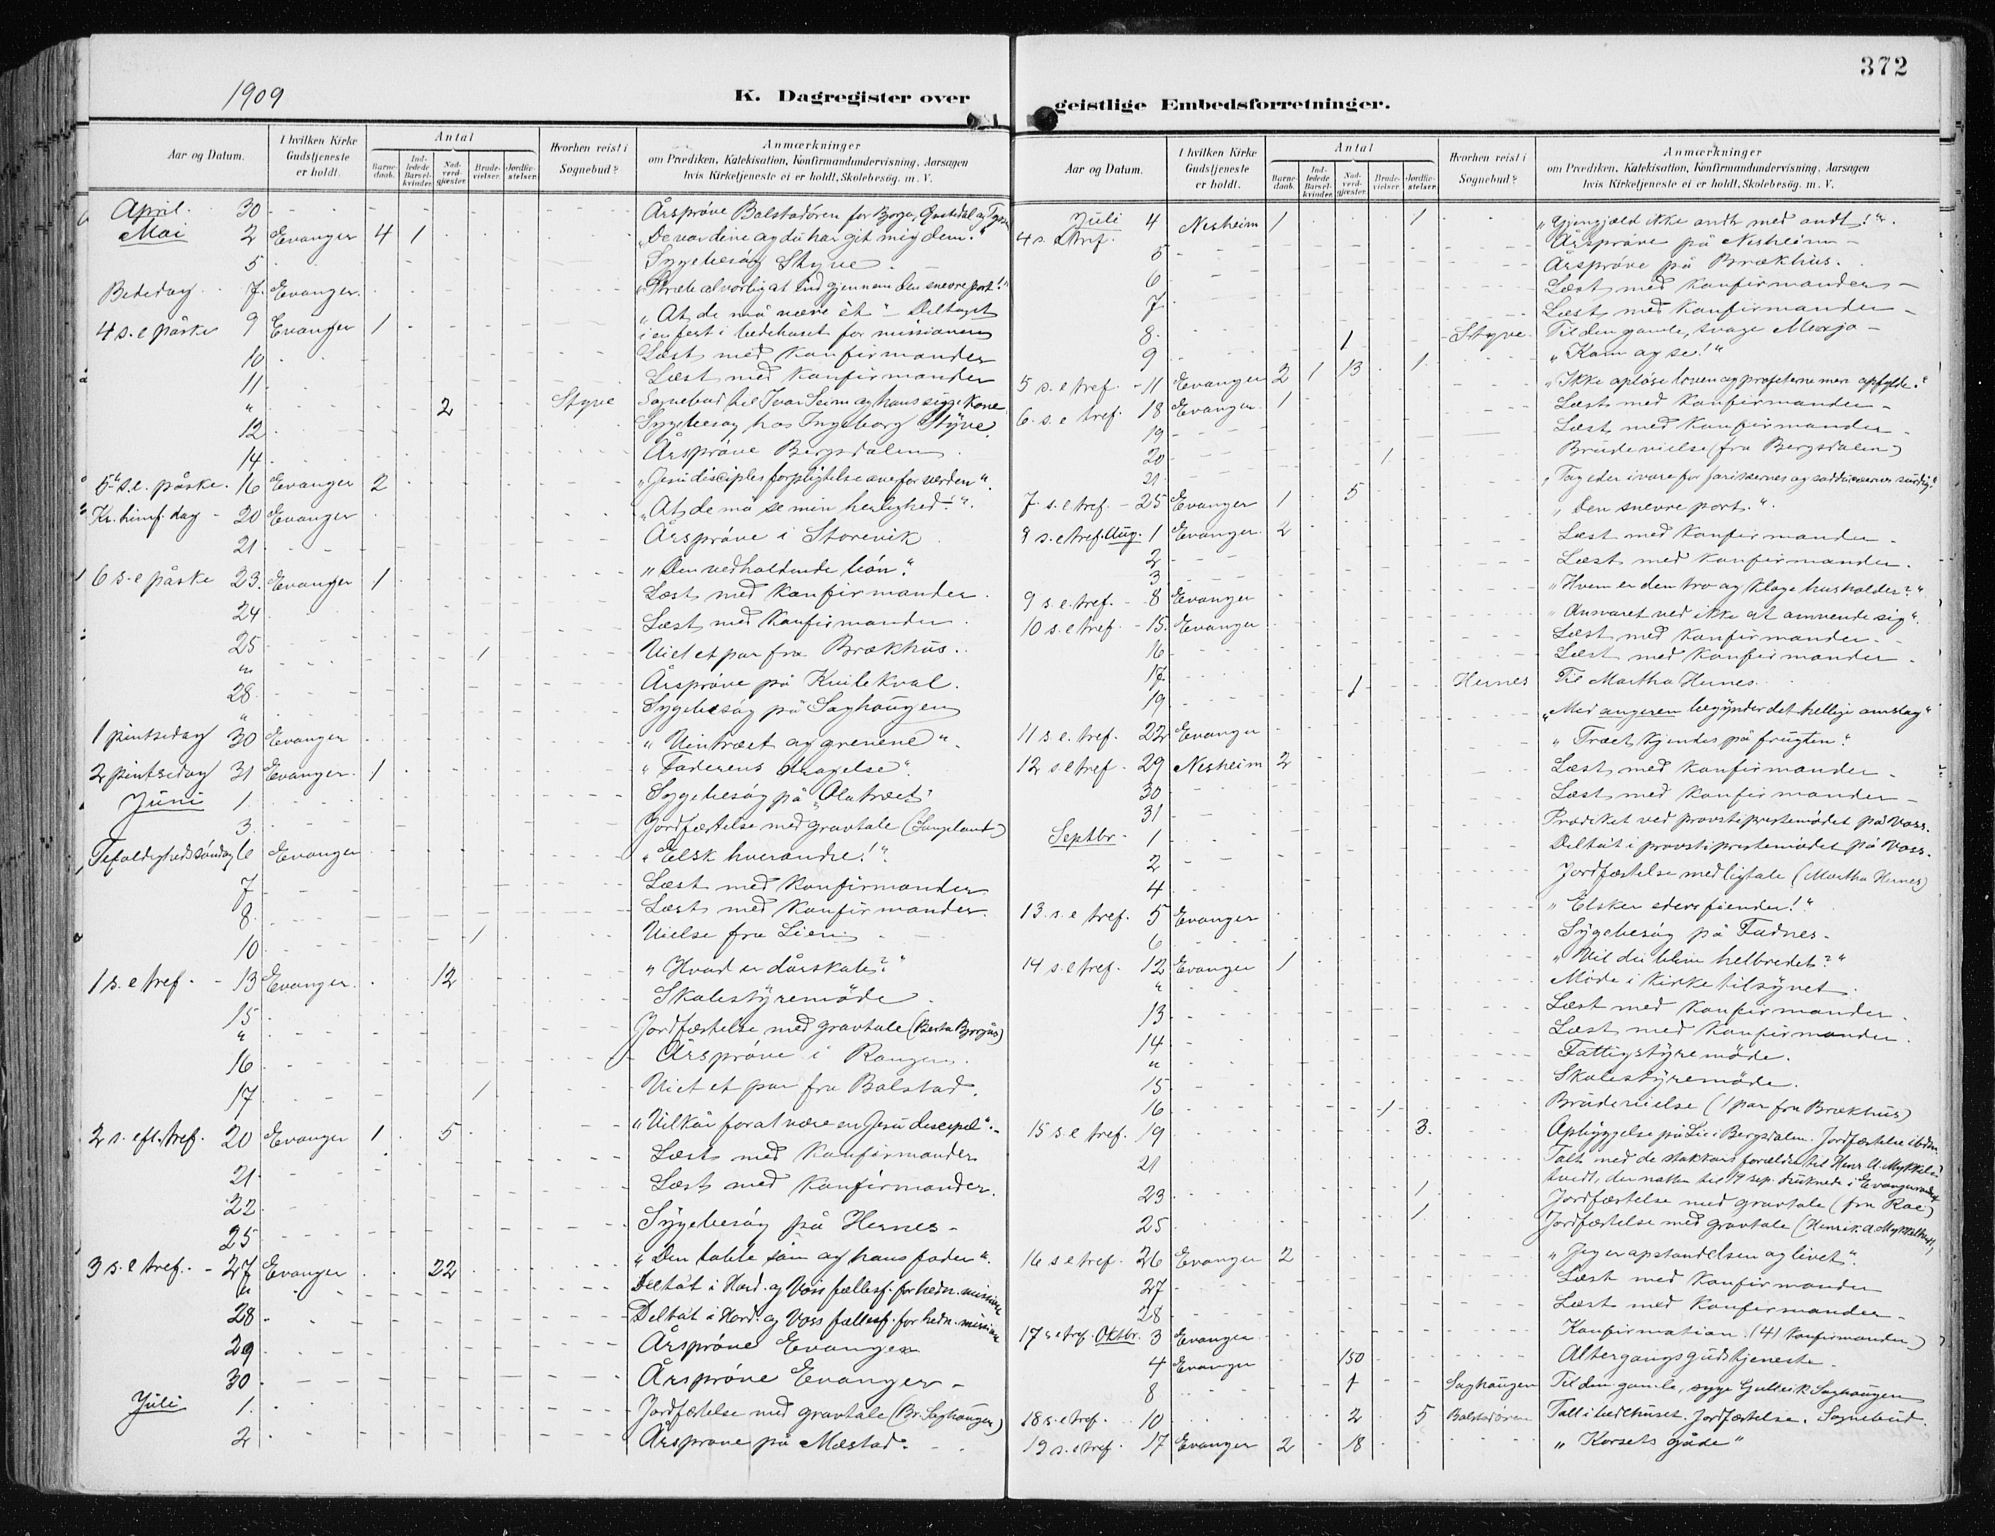 372
1909
K. Dagregister over geistlige Embedsforretninger.
Aar og Datum. I hvilken Kirke Gudstjeneste er holdt. Antal Barnedaab. Indledede Barselkvinder. Nadverdgjæster. Brudevielser. Jordfæstelser. Hvorhen reist i Sognebud? Anmærkninger om Prædiken, Katekisation, Konfirmandundervisning, Aarsagen hvis Kirketjeneste ei er holdt, Skolebesøg m. V.
April. 30 Årsprøve Bolstadören for
Mai 2 Evanger 4 1 „De var dine og du har git mig dem."
5 Sygebesög Styve
Bededag 7. Evanger. „Stræb alvorlig at ind gjennem den snevre port!"
4 s. e påske 9 Evanger 1 „At de må være ét" - Deltaget
i en fest i bedehuset for missionen
10 Læst med konfirmander
11 Læst med konfirmander
" 2 Styve Sognebud til Ivar Seim og hans syge kone
12 Sygebesög hos Ingeborg Styve.
14 Årsprøve Bergsdalen
5" s.e. påske. 16 Evanger 2 „Jesu disciples forpligtelse overfor verden".
Kr. himf. dag - 20 Evanger „At de må se min herlighed!".
21 Årsprøve i Storevik
6 s. e påske 23. Evanger 1 „Den vedholdende bön."
24 Læst med konfirmander.
25 Læst med konfirmander.
" 1 Viet et par fra Brækhus.
28 Årsprøve på Kvilekval.
" Sygebesög på Saghaugen
1 pintsedag 30 Evanger „Vintræet og grenene".
2 pintsedag 31 Evanger. 1 „Faderens dragelse".
Juni 1. Sygebesög på
3. Jordfæstelse med gravtale
Trefoldighedssöndag 6 Evanger „Elsk hverandre!".
7 Læst med konfirmander
8 Læst med konfirmander.
10 1 Vielse fra Lien
1 s. e tref. - 13 Evanger. 12 „Hvad er dårskab?"
15 Skolestyremöde
" Jordfæstelse med gravtale
16 Årsprøve i Rongen.
17 1 Viet et par fra Bolstad.
2 s. eft. tref. 20 Evanger 1 5 „Vilkår for at være en Jesu discipel".
21 Læst med konfirmander
22 Læst med konfirmander.
25 Sygebesög på Hernes-
3 s. e tref. - 27 Evanger 22 „Den tabte sön og hans fader".
" Deltat i Hord. og Voss fællesf. for hedn. mission
28 Deltat i Hord. og Voss fællesf. for hedn. mission
29 Årsprøve Evanger
30 Årsprøve Evanger-
Juli 1. Jordfæstelse med gravtale (Br. Saghaugen)
2 Årsprøve på Mæstad.
Juli
4 s. e tref. 4 Nesheim 1 1 „Gjengjæld ikke ondt med ondt!".
5 Årsprøve på Nesheim-
6 Årsprøve på Brækhus.
7 Læst med konfirmander-
8. Læst med konfirmander-
9 1 Styve. Til den gamle, svage
5 s. e tref. - 11 Evanger 2 1 13 1 „Kom og se!"
6. s. e tref. 18 Evanger. 1 „Ikke oplöse loven og profeterne men opfylde."
19 Læst med konfirmander-
20 Læst med konfirmander-
21 1 Brudevielse (fra Bergsdalen)
7 s. e tref. - 25 Evanger 1 5 „Tag eder i vare for farisæernes og sadducæernes surdeig."
8 s. e tref. Aug. 1 Evanger 2 „Den snevre port.".
2 Læst med konfirmander-
3 Læst med konfirmander.
9 s. e. tref. - 8 Evanger „Hvem er den tro og kloge husholder?".
10 s. e tref. - 15. Evanger „Ansvaret ved ikke at omvende sig".
16 Læst med konfirmander-
17. Læst med konfirmander-
19 1 Hernes Til Martha Hernes.
11 s. e. tref. - 22 Evanger „Med angeren begynder det hellige omslag"
12 s. e tref - 29 Nesheim 2 „Træet kjendes på frugten".
30 Læst med konfirmander-
31 Læst med konfirmander-
Septbr. 1 Prædiket ved provstiprestemödet på Voss.
2 Deltat i provstiprestemödet på Voss.
4 Jordfæstelse med ligtale (Martha Hernes)
13. s. e tref. 5 Evanger „Elsker eders fiender!"
6 Sygebesög på Fadnes-
14 s. e tref. 12 Evanger 1 „Vil du blive helbredet?"
" Möde i kirketilsynet.
13 Læst med konfirmander.
14 Læst med konfirmander.
" Fattigstyremöde.
15 Skolestyremöde.
16 1 Brudevielse (1 par fra Brækhus)
15 s. e tref. 19 3. Opbyggelse på Lie i Bergsdalen. Jordfæstelse
21 Talt med de stakkars forældre til Henr. A. Mykkeltvedt, der natten til 19 sep. druknede i
23 1 Jordfæstelse med gravtale (fra Rae)
25 1. Jordfæstelse med gravtale (Henrik A. Mykkeltvedt)
16 s. e tref. - 26 Evanger 2 „Jeg er opstandelsen og livet".
27 Læst med konfirmander
28 Læst med konfirmander-
17 s. e tref. Oktbr. 3 Evanger. Konfirmation. (41 konfirmander)
4 Evanger 150 Altergangsgudstjeneste-
8 1 Saghaugen Til den gamle, syge Gulleik Saghaugen
18 s. e tref. 10 2 5 Bolstadören Talt i bedehuset. Jordfæstelse. Sognebud.
19 s. e tref. 17 Evanger 2 18 „Korsets gåde"